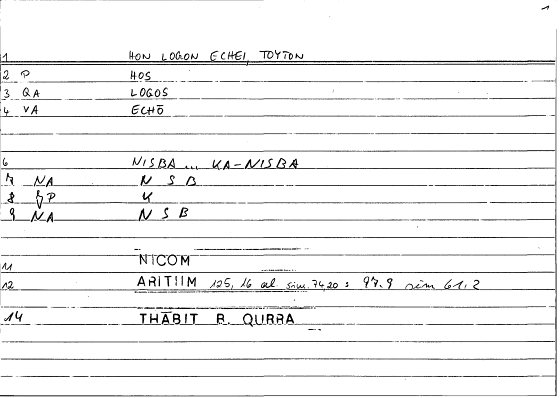 1
1 HON LOGON ECHEI, TOYTON
2 P HOS
3 QA LOGOS
4 VA ECHŌ
6 NISBA ... KA-NISBA
7 NA N S B
8 P K
9 NA N S B
11 NICOM
12 ARITIIM 125, 16 al sim. 74,20 : 97.9 sim 61.2
14 THĀBIT B. QURRA